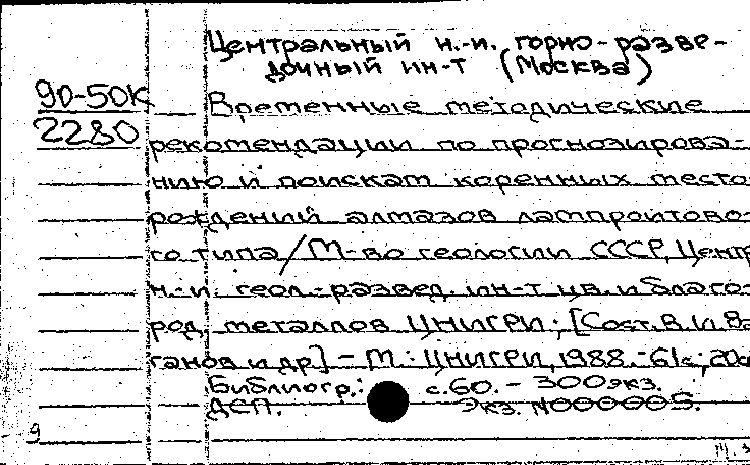 Центральный н.-и. горно-разве-
дочный ин-т (Москва)
90-50К Временные методические
2280 рекомендации по прогнозирова-
нию и поискам коренных место-
рождений алмазов лампроитово-
го типа / М-во геологии СССР, Центр.
н.-и. геол.-развед. ин-т цв. и благо-
род. металлов ЦНИГРИ; [Сост. В. И. Ва-
ганов и др.] - М.: ЦНИГРИ, 1988. - 61 с.; 20
Библиогр.: с. 60. - 300 экз.
ДСП. Экз. N000005.
9